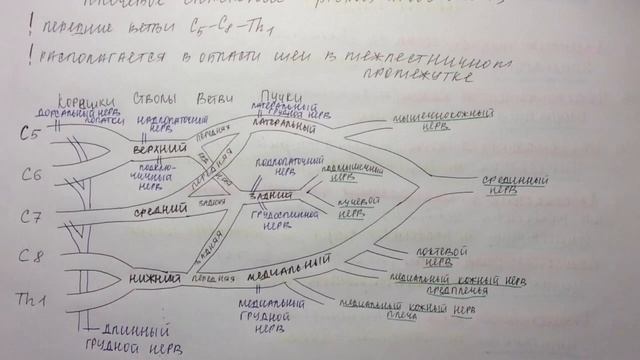 ! передние ветви C5-C8-Th1
! располагается в области шеи в межлестничном
промежутке
Корешки Стволы Ветви Пучки
дорсальный нерв
лопатки
надлопаточный
нерв
латеральный
грудной нерв
C5
верхний
передняя
латеральный
мышечнокожный
нерв
подклю-
чичный нерв
C6
передняя
подлопаточный
нерв
задний
грудоспинной
нерв
подмышечный
нерв
лучевой
нерв
срединный
нерв
C7
средний
задняя
C8
задняя
нижний
передняя
медиальный
локтевой
нерв
медиальный кожный нерв
предплечья
медиальный кожный нерв
плеча
Th1
медиальный
грудной
нерв
длинный
грудной нерв